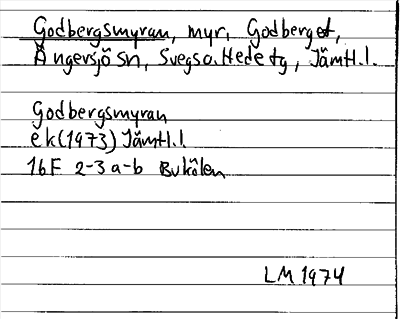 Godbergsmyran, myr, Godberget,
Ängersjö sn, Svegs o. Hede tg, Jämtl. l.
Godbergsmyran
ek (1973) Jämtl. l.
16F 2-3 a-b Bukölen
LM 1974